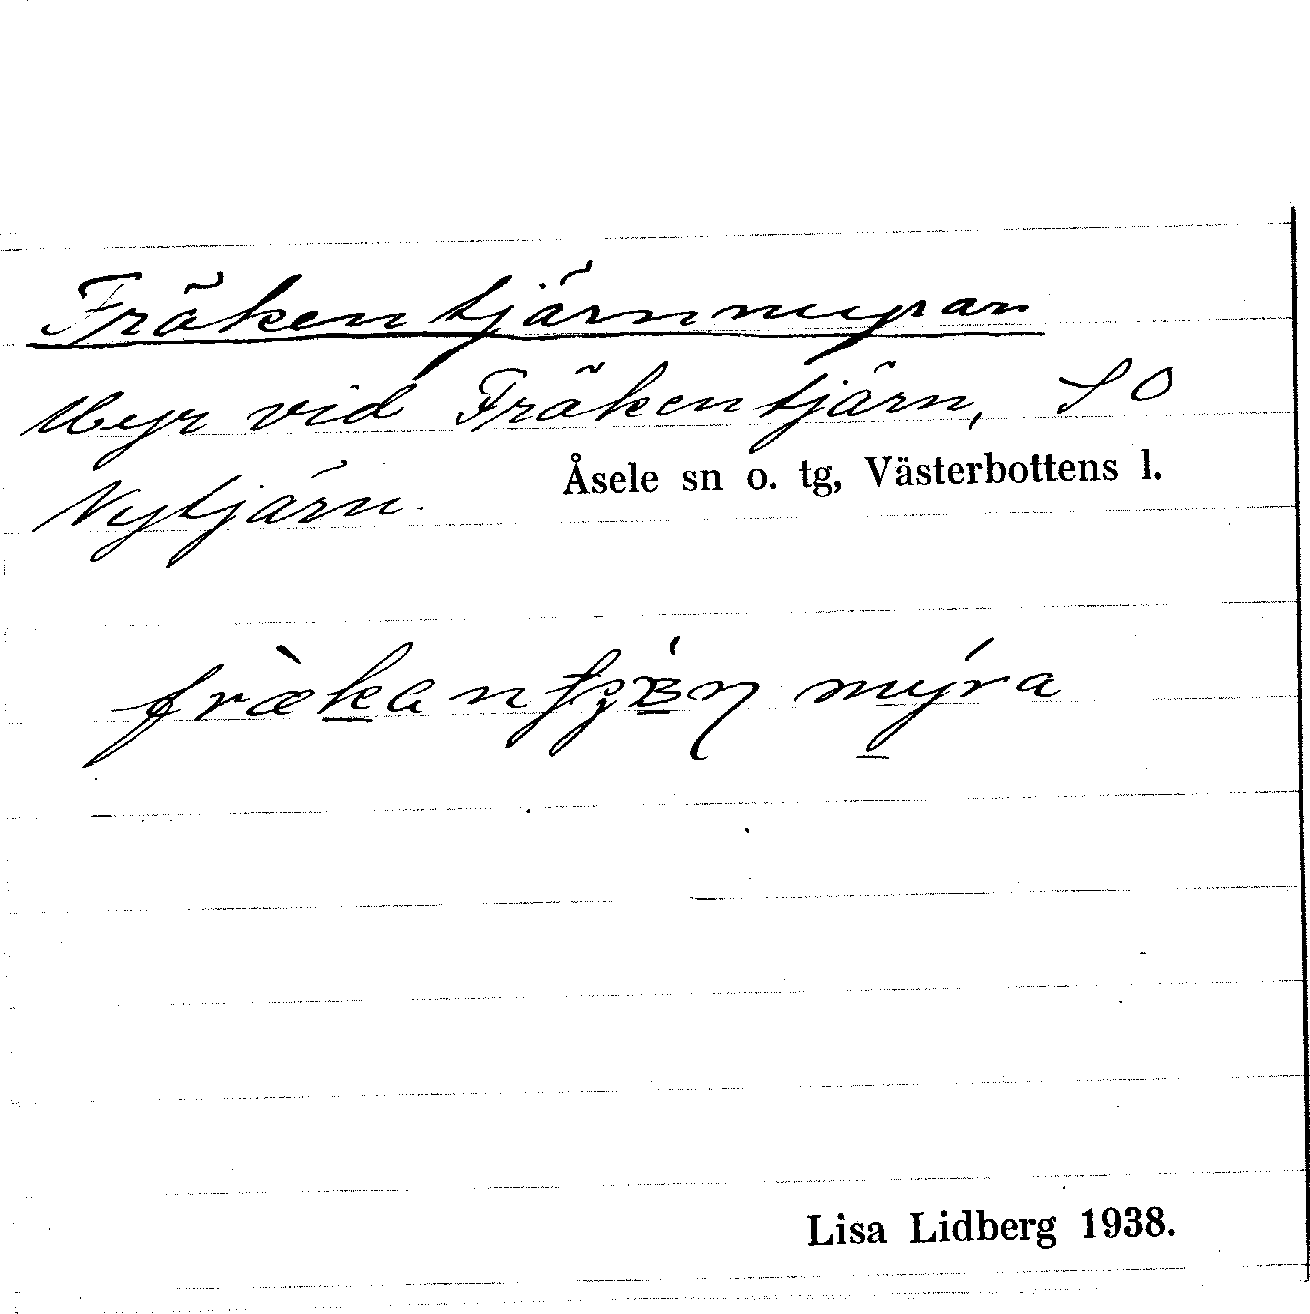 Fräkentjärnmyran
Myr vid Fräkentjärn, SO
Nytjärn.
Åsele sn o. tg, Västerbottens l.
myra
Lisa Lidberg 1938.